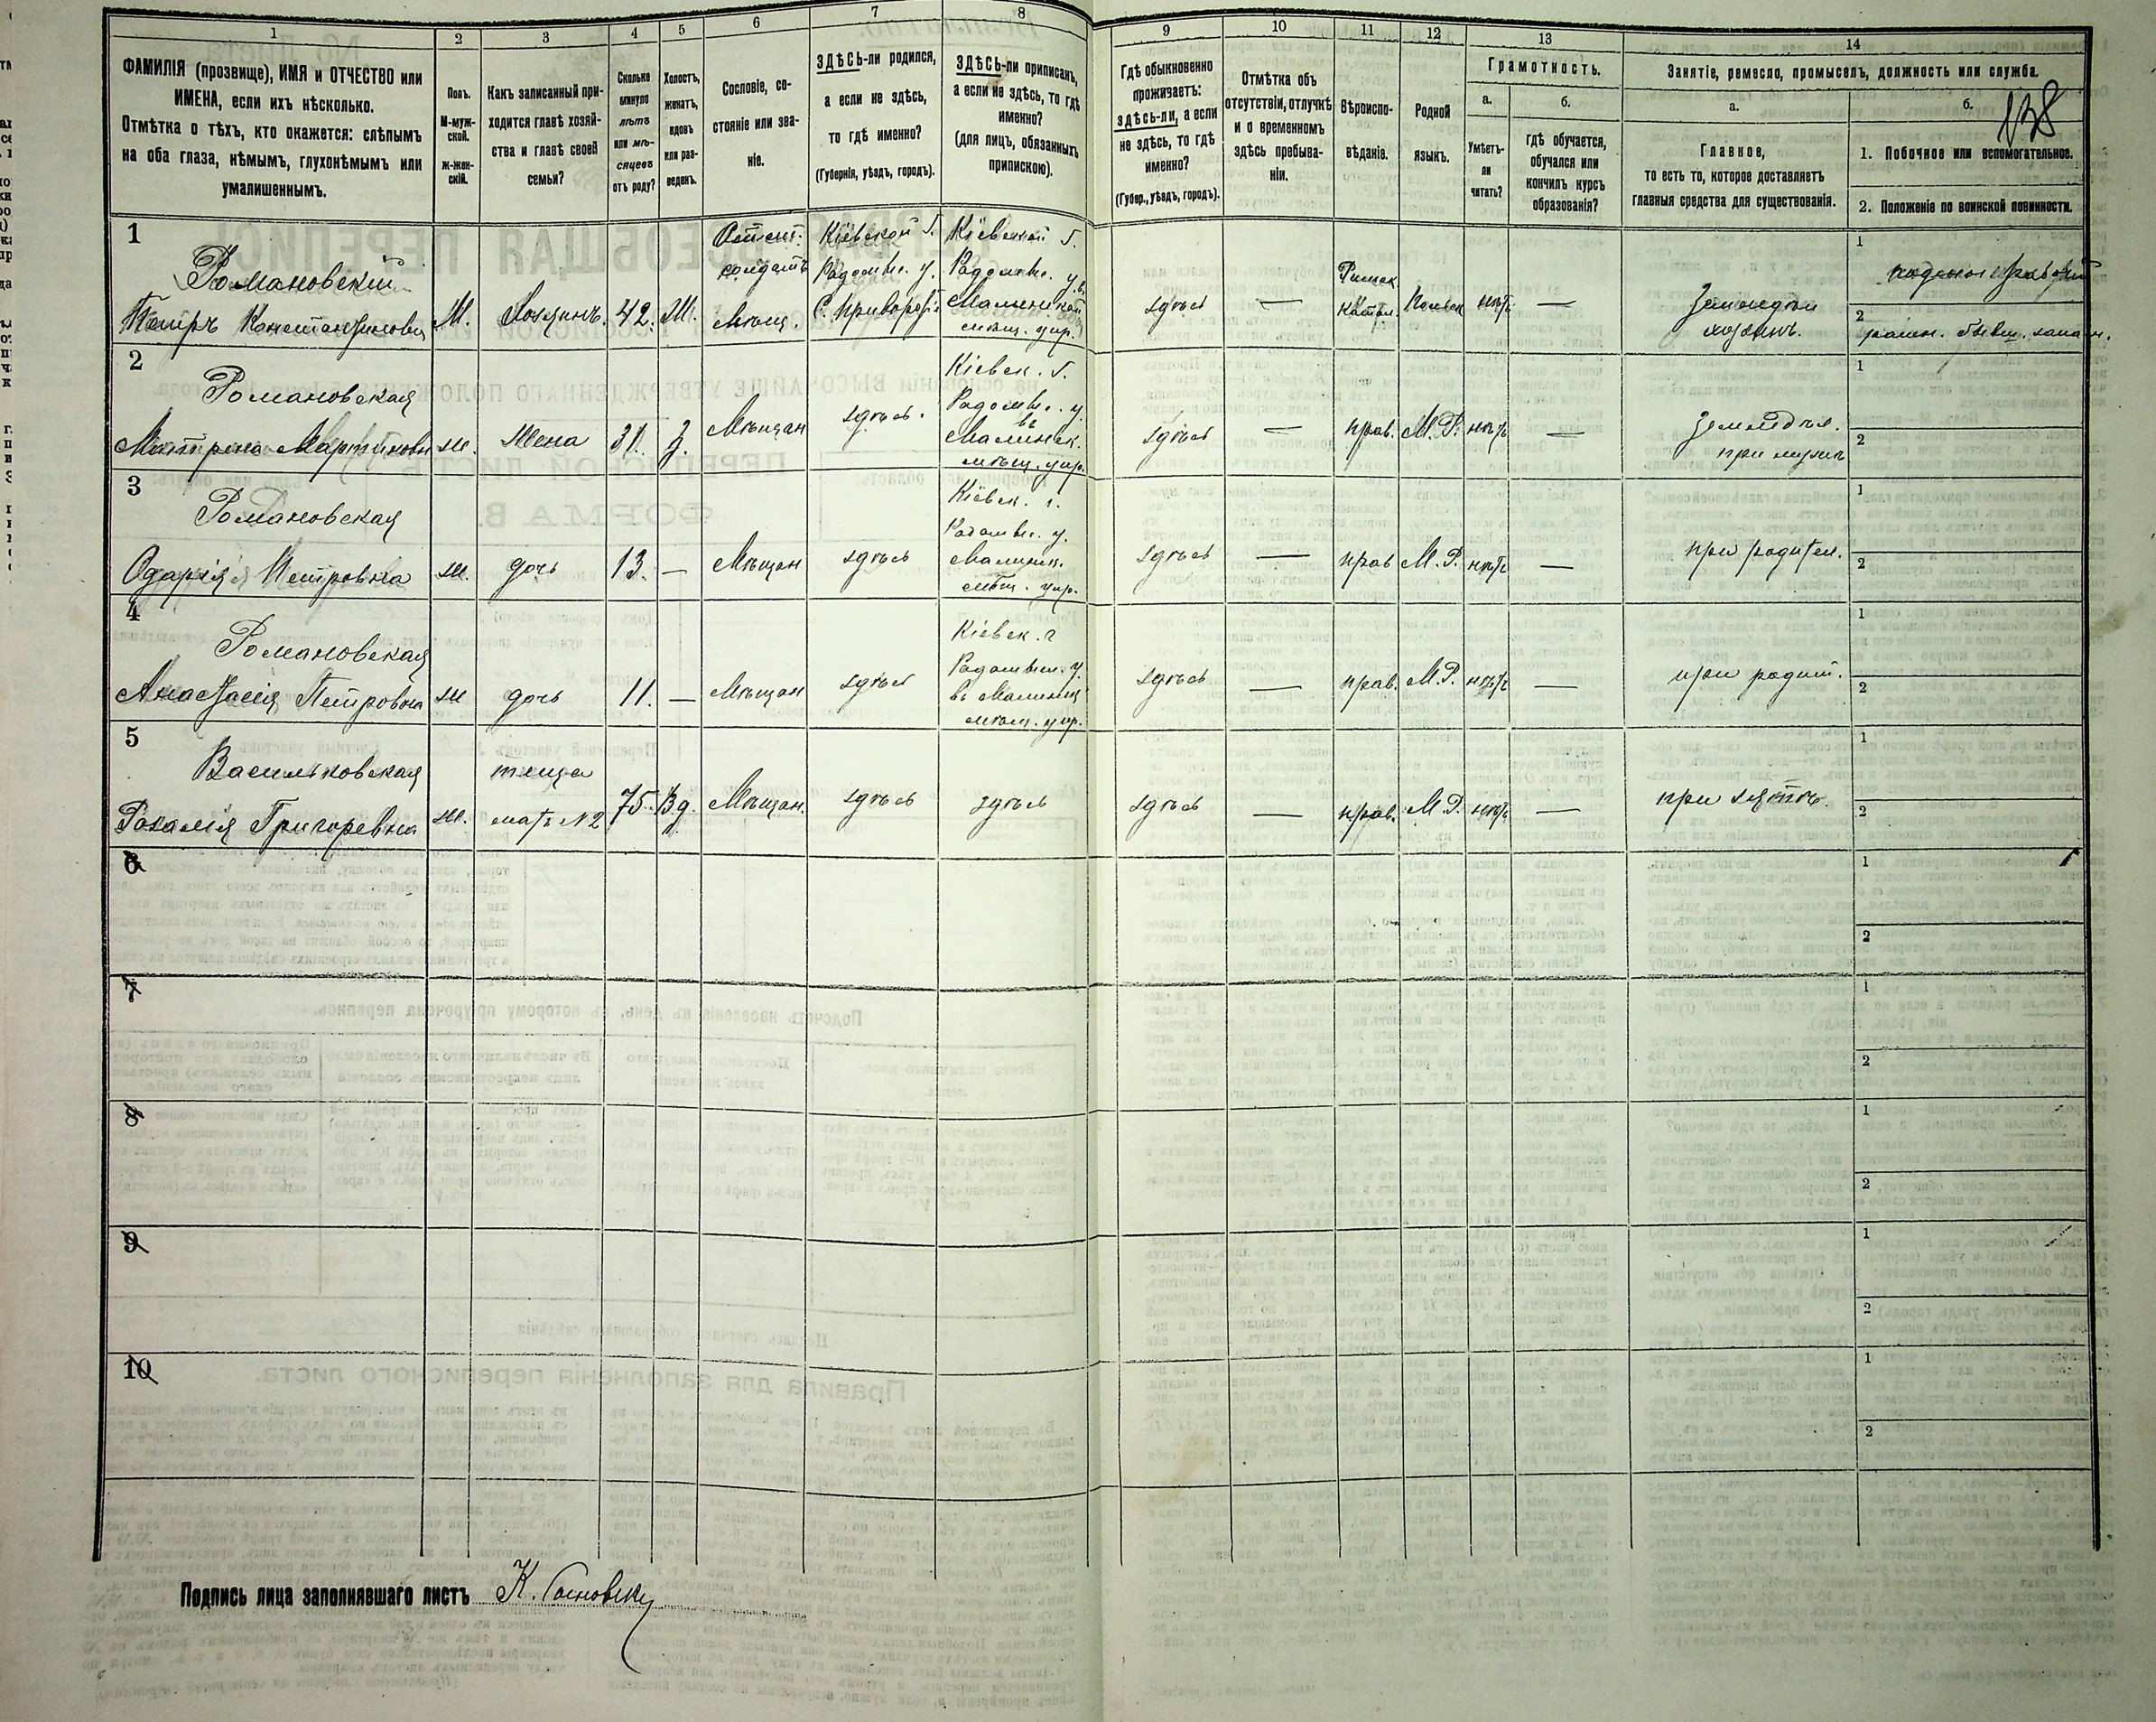 1 2 3 4 5 6 7 8 9 10 11 12 13 14
ФАМИЛІЯ (прозвище), ИМЯ и ОТЧЕСТВО или
ИМЕНА, если ихъ нѣсколько.
Отмѣтка о тѣхъ, кто окажется: слѣпымъ
на оба глаза, нѣмымъ, глухонѣмымъ или
умалишеннымъ.
Полъ.
М-муж-
ской.
Ж-жен-
скій.
Какъ записанный при-
ходится главѣ хозяй-
ства и главѣ своей
семьи?
Сколько
минуло
лѣтъ
или мѣ-
сяцевъ
отъ роду?
Холостъ,
женатъ,
вдовъ
или раз-
веденъ.
Сословіе, со-
стояніе или зва-
ніе.
ЗДѢСЬ-ли родился,
а если не здѣсь,
то гдѣ именно?
(Губернія, уѣздъ, городъ).
ЗДѢСЬ-ли приписанъ,
а если не здѣсь, то гдѣ
именно?
(для лицъ, обязанныхъ
припискою).
Гдѣ обыкновенно
проживаетъ:
здѣсь-ли, а если
не здѣсь, то гдѣ
именно?
(Губер., уѣздъ, городъ).
Отмѣтка объ
отсутствіи, отлучкѣ
и о временномъ
здѣсь пребыва-
ніи.
Вѣроиспо-
вѣданіе.
Родной
языкъ.
Грамотность.
а.
Умѣетъ-
ли
читать?
б.
гдѣ обучается,
обучался или
кончилъ курсъ
образованія?
Занятіе, ремесло, промыселъ, должность или служба.
а.
Главное,
то есть то, которое доставляетъ
главныя средства для существованія.
б.
138
1. Побочное или вспомогательное.
2. Положеніе по воинской повинности.
1
Романовскій
Петръ Константиновичъ
М.
Хозяинъ.
42.
Ж.
солдатъ
Мѣщ.
Кіевской Г.
Радомыс. у.
Кіевской Г.
Радомыс. у. въ
Малинской
мѣщ. упр.
здѣсь
—
Римск.
Катол.
Польск
нѣтъ
—
хозяинъ.
1
2
2
Романовская
Матрена Мартиновна
ж.
Жена
31.
З.
Мѣщан
здѣсь.
Кіевск. Г.
Радомыс. у.
въ
Малинск.
мѣщ. упр.
здѣсь
—
прав.
М.Р.
нѣтъ
—
земледѣл.
при мужѣ
1
2
3
Романовская
Одарія Петровна
ж.
дочь
13.
—
Мѣщан
здѣсь
Кіевск. г.
Радомыс. у.
Малинск.
мѣщ. упр.
здѣсь
—
прав
М.Р.
нѣтъ
—
при родител.
1
2
4
Романовская
Анастасія Петровна
ж
дочь
11.
—
Мѣщан
здѣсь
Кіевск. г
Радомыс. у.
въ Малинск
мѣщ. упр.
здѣсь
—
прав.
М.Р.
нѣтъ
—
при родит.
1
2
5
Васильковская
Розалія Григоревна
ж.
теща
мать №2
75.
Вд.
Мѣщан.
здѣсь
здѣсь
здѣсь
—
прав.
М.Р.
нѣтъ
—
при зятѣ.
1
2
6
1
2
7
1
2
8
1
2
9
1
2
10
1
2
Подпись лица заполнявшаго листъ